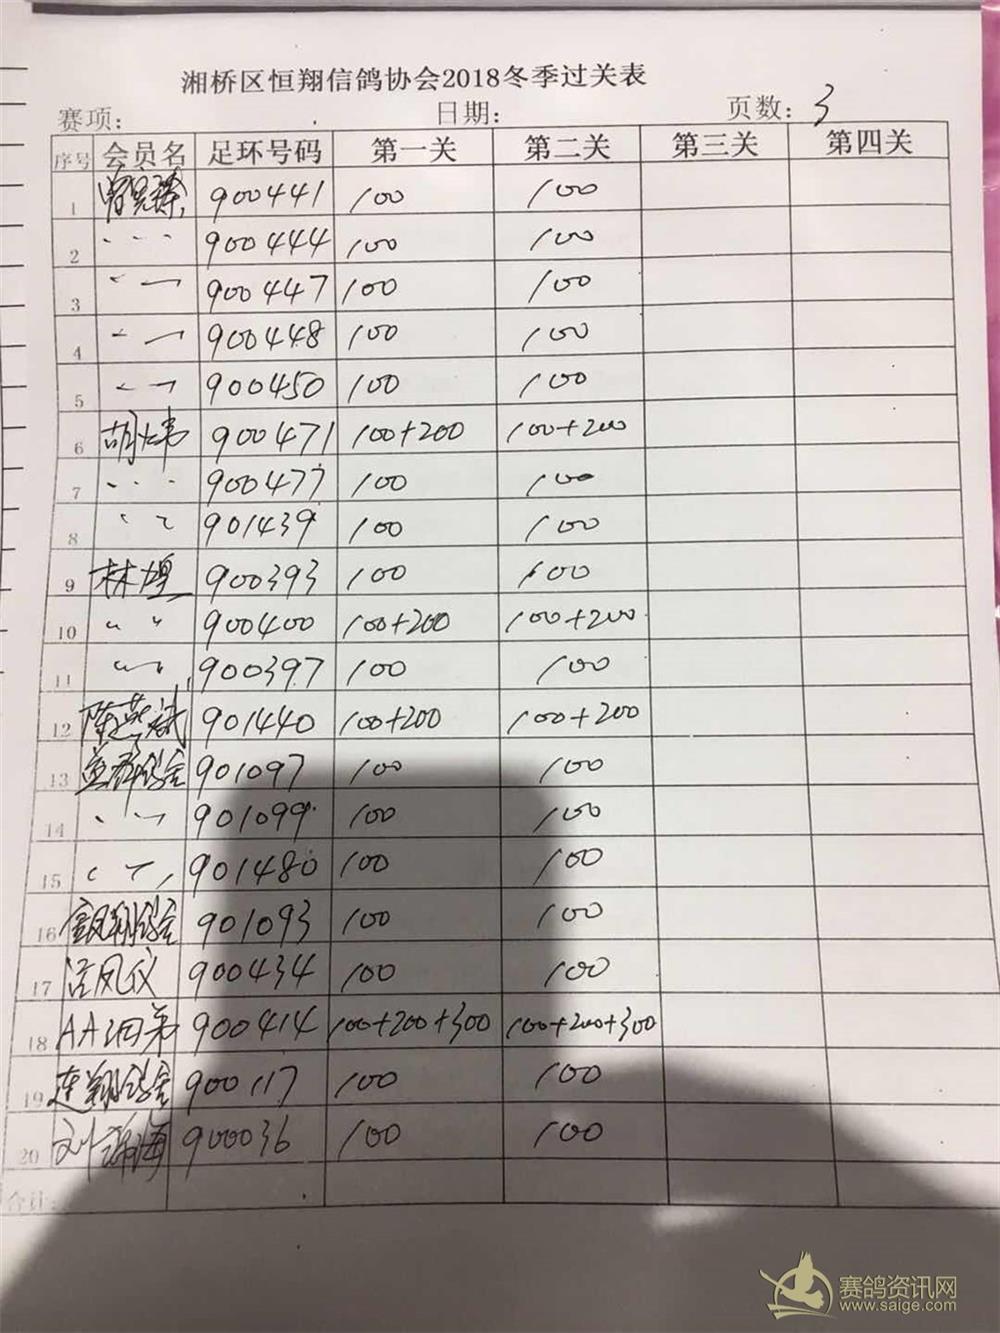 湘桥区恒翔信鸽协会2018冬季过关表
赛项： 日期： 页数：3
序号 会员名 足环号码 第一关 第二关 第三关 第四关
1 900441 100 100
2 〃 900444 100 100
3 〃 900447 100 100
4 〃 900448 100 100
5 〃 900450 100 100
6 胡炜 900471 100+200 100+200
7 〃 900477 100 100
8 〃 901439 100 100
9 林煌 900393 100 100
10 〃 900400 100+200 100+200
11 〃 900397 100 100
12 陈 901440 100+200 100+200
13 鸽舍 901097 100 100
14 〃 901099 100 100
15 〃 901480 100 100
16 翔鸽舍 901093 100 100
17 凤仪 900434 100 100
18 AA 兄弟 900414 100+200+300 100+200+300
19 连翔鸽舍 900117 100 100
20 刘 海 900036 100 100
合计：
赛鸽资讯网
www.saige.com